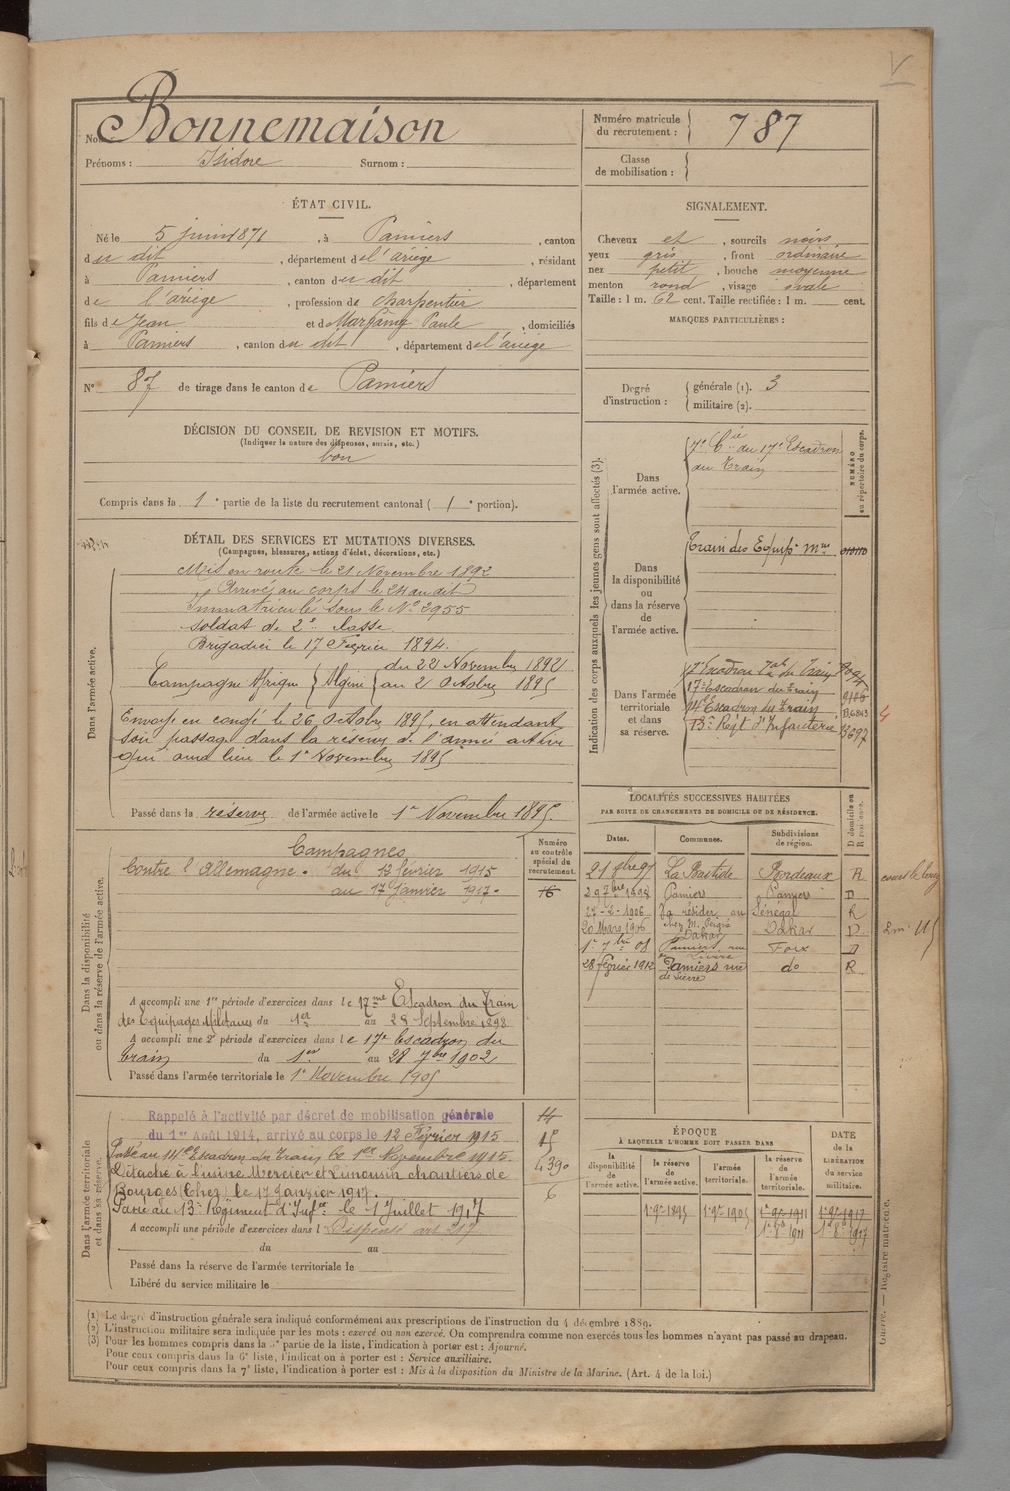 V
Nom: Bonnemaison
Prénoms : Isidore Surnom :
Numéro matricule
du recrutement : 787
Classe
de mobilisation :
ÉTAT CIVIL.
Né le 5 juin 1871, à Pamiers, canton
du dit, département de l'ariège, résidant
à Pamiers, canton du dit, département
de l'ariège, profession de charpentier
fils de Jean et de Paule, domiciliés
à Pamiers, canton du dit, département de l'ariège
N° 87 de tirage dans le canton de Pamiers
SIGNALEMENT.
Cheveux et, sourcils noirs
yeux gris, front ordinaire
nez petit, bouche moyenne
menton rond, visage ovale
Taille : 1 m. 62 cent. Taille rectifiée : 1 m. cent.
MARQUES PARTICULIÈRES :
Degré
d'instruction :
générale (1). 3
militaire (2).
DÉCISION DU CONSEIL DE REVISION ET MOTIFS.
(Indiquer la nature des dispenses, sursis, etc.)
bon
Compris dans la 1e partie de la liste du recrutement cantonal (1e portion).
DÉTAIL DES SERVICES ET MUTATIONS DIVERSES.
(Campagnes, blessures, actions d'éclat, décorations, etc.)
Dans l'armée active.
Mis en route le 21 Novembre 1892
Arrivé au corps le 24 au dit
Immatriculé sous le N° 2955
soldat de 2e classe
Brigadier le 17 Février 1894.
Campagne Afrique { Algérie { du 22 Novembre 1892
au 2 Octobre 1895
Envoyé en congé le 26 Octobre 1895, en attendant
son passage dans la réserve de l'armée active
qui aura lieu le 1er Novembre 1895
Passé dans la réserve de l'armée active le 1er Novembre 1895.
Indication des corps auxquels les jeunes gens sont affectés (3).
NUMÉRO
au répertoire du corps.
Dans
l'armée active.
7e Cie du 17e Escadron
du Train
Dans
la disponibilité
ou
dans la réserve
de
l'armée active.
Train des Equip. Mres
Dans l'armée
territoriale
et dans
sa réserve.
17e Escadron du Train
14e Escadron du Train
13e Régt d'Infanterie
LOCALITÉS SUCCESSIVES HABITÉES
PAR SUITE DE CHANGEMENTS DE DOMICILE OU DE RÉSIDENCE.
D domicile ou
R résidence.
Dates. Communes. Subdivisions
de région.
La Bastide Bordeaux R
29 7bre 1898 Pamiers Pamiers D
27-2-1906 Va résider au Sénégal R
20 Mars 1906 chez M. Dakar Dakar D
1er 7bre 08 Pamiers, rue Foix D
28 Février 1912 Pamiers rue do R
Dans la disponibilité
ou dans la réserve de l'armée active.
Numéro
au contrôle
spécial du
recrutement.
16
Campagnes
Contre l'Allemagne. du 12 février 1915
au 17 Janvier 1917.
A accompli une 1re période d'exercices dans le 17me Escadron du Train
des Equipages Militaires du 1er au 28 Septembre 1898
A accompli une 2e période d'exercices dans le 17e Escadron du
Train du 1er au 28 7bre 1902
Passé dans l'armée territoriale le 1er Novembre 1905
Dans l'armée territoriale
et dans sa réserve.
Rappelé à l'activité par décret de mobilisation générale
du 1er Août 1914, arrivé au corps le 12 Février 1915
Passé au 14e Escadron du Train le 1er Novembre 1915.
Détaché à l'usine Mercier et Limousin chantiers de
Bourges (Cher) le 17 Janvier 1917.
Passé au 13e Régiment d'Infrie le 1 Juillet 1917
A accompli une période d'exercices dans l Dispensé art 217
du au
Passé dans la réserve de l'armée territoriale le
Libéré du service militaire le
ÉPOQUE
À LAQUELLE L'HOMME DOIT PASSER DANS
la
disponibilité
de
l'armée active.
la réserve
de
l'armée active.
l'armée
territoriale.
la réserve
de
l'armée
territoriale.
DATE
de la
LIBÉRATION
du service
militaire.
1er 9bre 1895 1er 9bre 1905 1er 9bre 1911 1er 9bre 1917
(1) Le degré d'instruction générale sera indiqué conformément aux prescriptions de l'instruction du 4 décembre 1889.
(2) L'instruction militaire sera indiquée par les mots : exercé ou non exercé. On comprendra comme non exercés tous les hommes n'ayant pas passé au drapeau.
(3) Pour les hommes compris dans la 5e partie de la liste, l'indication à porter est : Ajourné.
Pour ceux compris dans la 6e liste, l'indication à porter est : Service auxiliaire.
Pour ceux compris dans la 7e liste, l'indication à porter est : Mis à la disposition du Ministre de la Marine. (Art. 4 de la loi.)
Guerre. — Registre matricule.